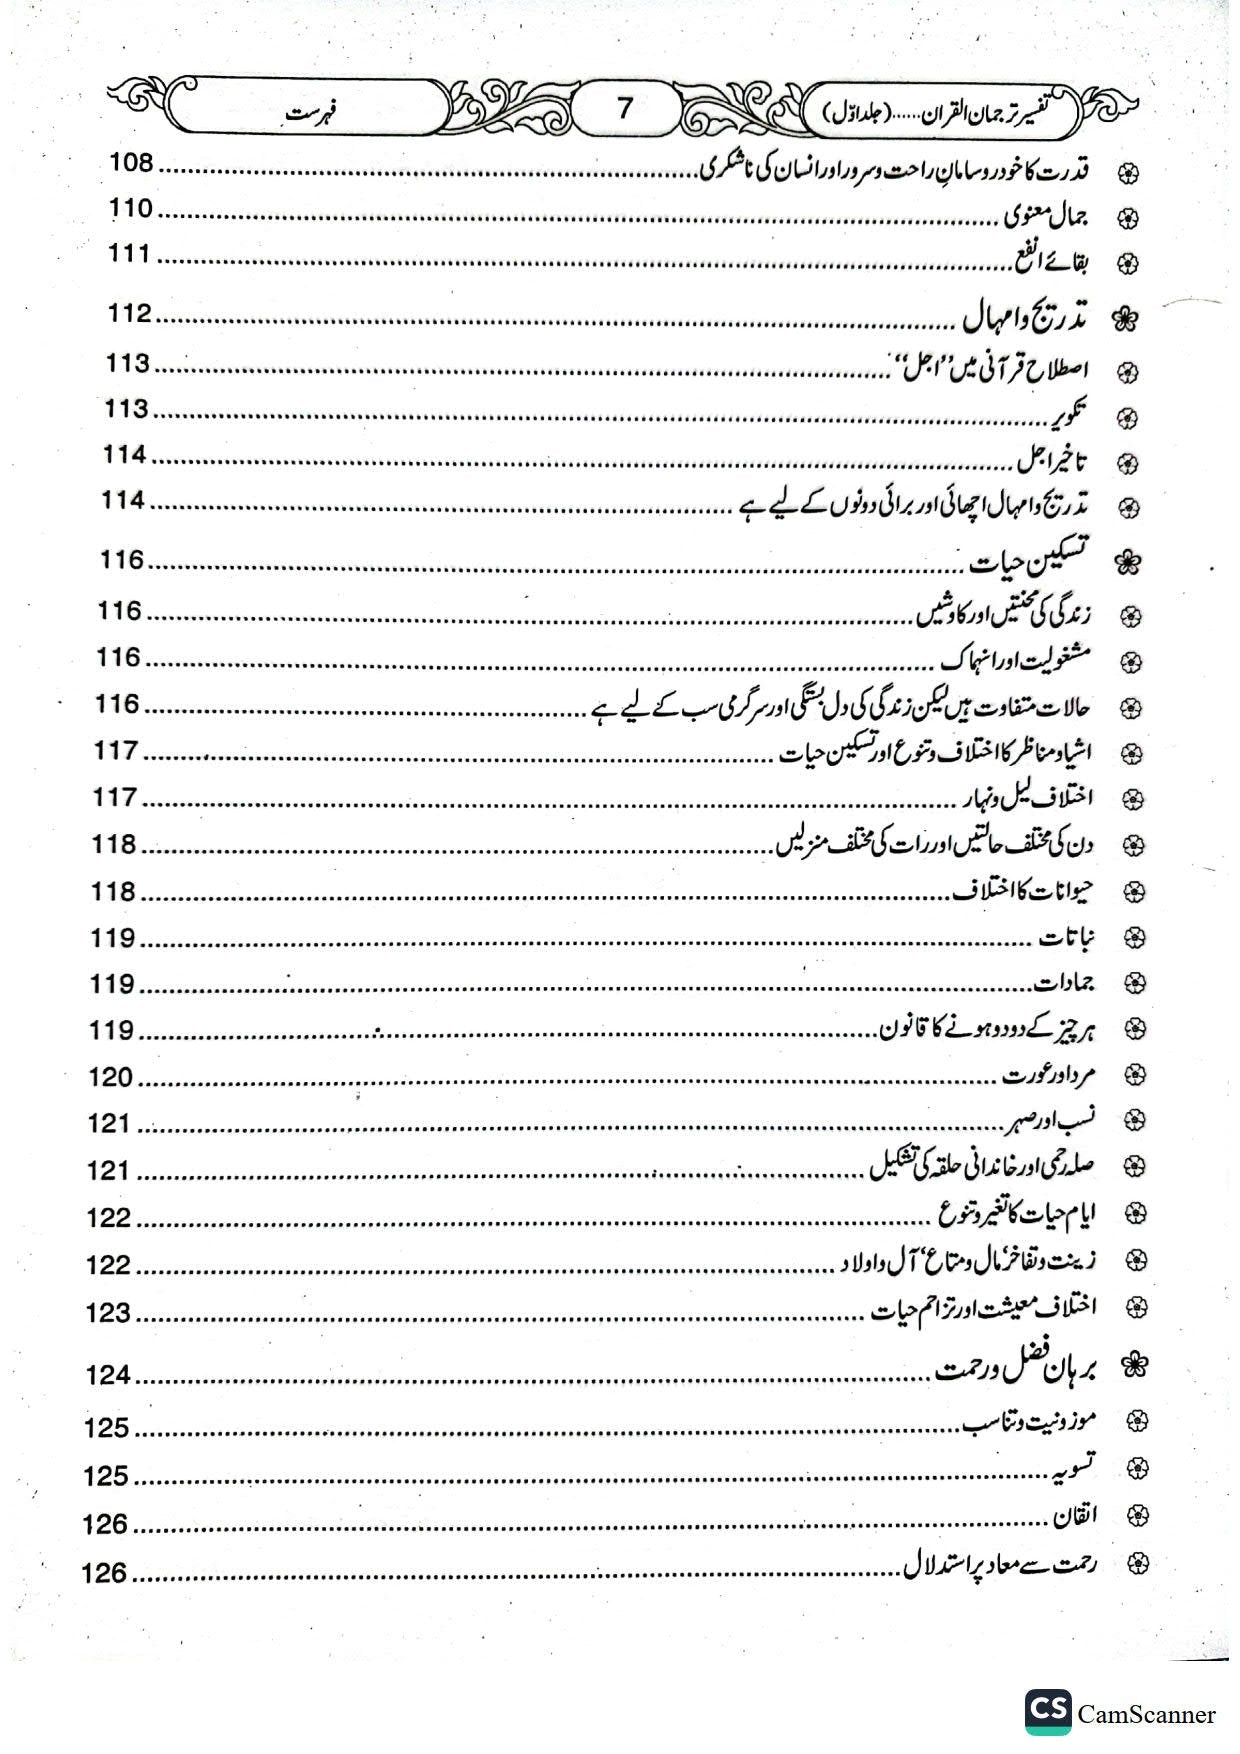 تفسیر ترجمان القران......(جلد اوّل) 7 فہرست
قدرت کا خودرو سامانِ راحت و سرور اور انسان کی ناشکری 108
جمال معنوی 110
بقائے انفع 111
تدریج و امہال 112
اصطلاح قرآنی میں ’’اجل‘‘ 113
تکویر 113
تاخیر اجل 114
تدریج و امہال اچھائی اور برائی دونوں کے لیے ہے 114
تسکین حیات 116
زندگی کی محنتیں اور کاوشیں 116
مشغولیت اور انہماک 116
حالات متفاوت ہیں لیکن زندگی کی دل بستگی اور سرگرمی سب کے لیے ہے 116
اشیا و مناظر کا اختلاف و تنوع اور تسکین حیات 117
اختلاف لیل و نہار 117
دن کی مختلف حالتیں اور رات کی مختلف منزلیں 118
حیوانات کا اختلاف 118
نباتات 119
جمادات 119
ہر چیز کے دو دو ہونے کا قانون 119
مرد اور عورت 120
نسب اور صہر 121
صلہ رحمی اور خاندانی حلقہ کی تشکیل 121
ایام حیات کا تغیر و تنوع 122
زینت و تفاخر، مال و متاع، آل و اولاد 122
اختلاف معیشت اور تزاحم حیات 123
برہان فضل و رحمت 124
موزونیت و تناسب 125
تسویہ 125
اتقان 126
رحمت سے معاد پر استدلال 126
CS CamScanner